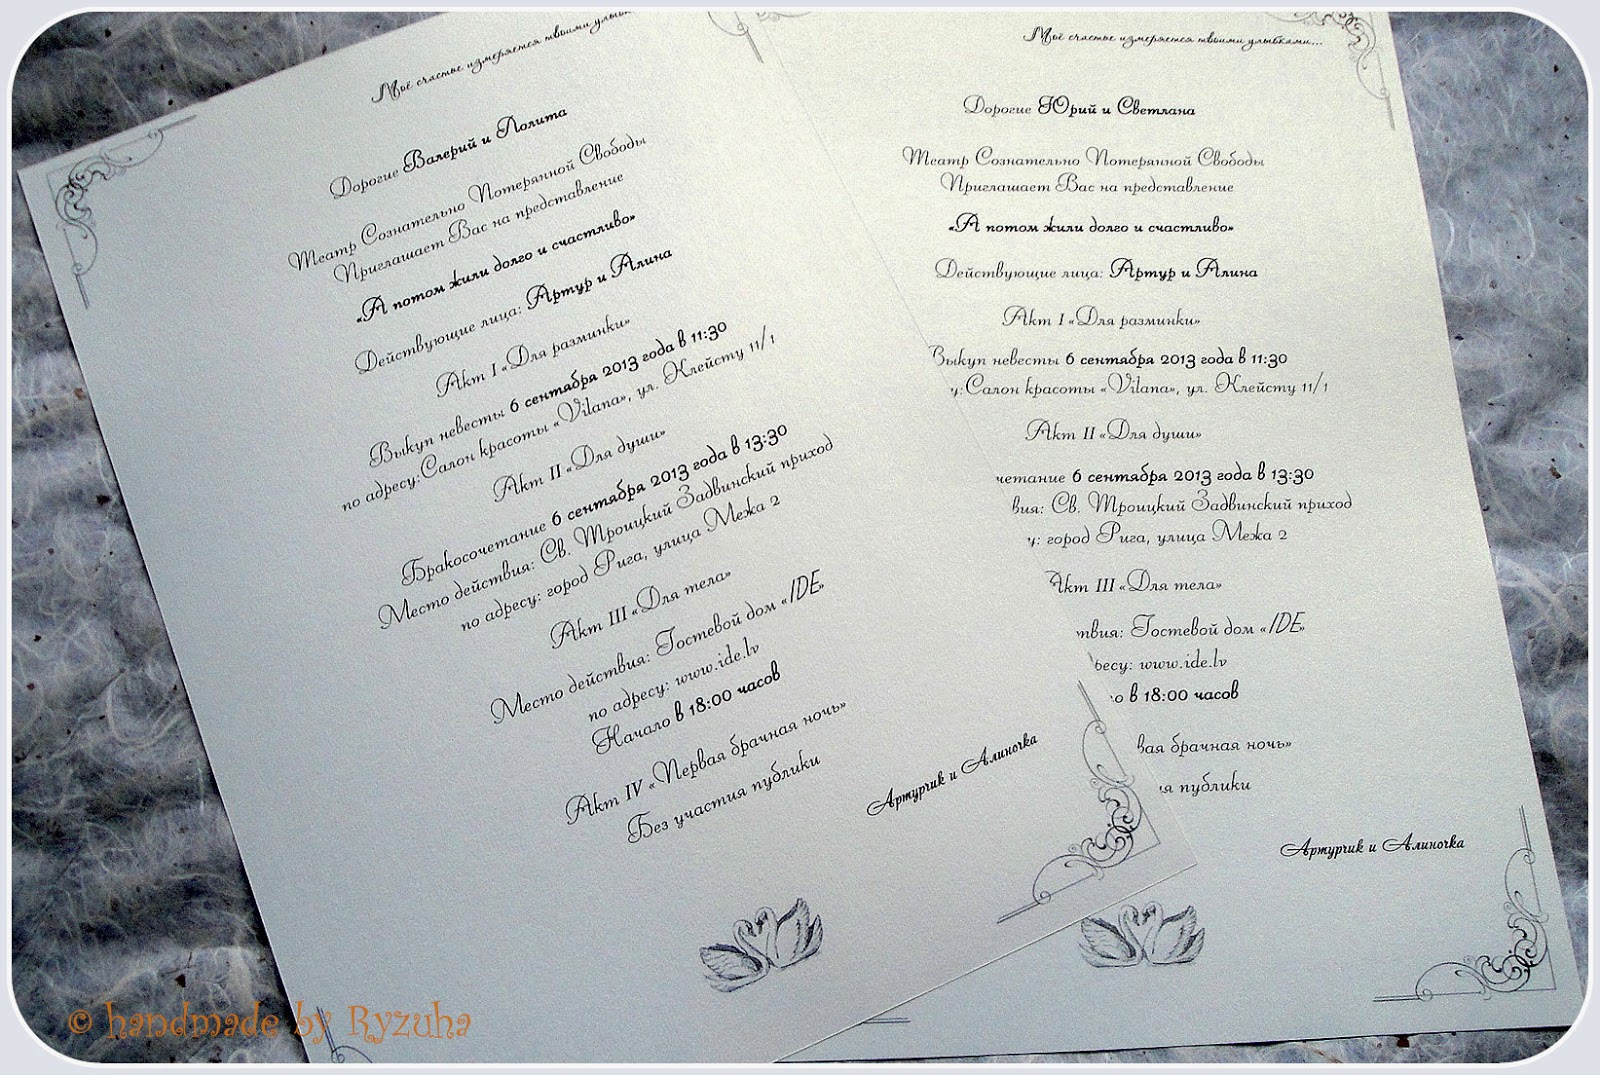 Моё счастье измеряется твоими
Дорогие Валерий и Лолита
Театр Сознательно Потерянной Свободы
Приглашает Вас на представление
«А потом жили долго и счастливо»
Действующие лица: Артур и Алина
Акт I «Для разминки»
Выкуп невесты 6 сентября 2013 года в 11:30
по адресу:Салон красоты «Vilana», ул. Клейсту 11/1
Акт II «Для души»
Бракосочетание 6 сентября 2013 года в 13:30
Место действия: Св. Троицкий Задвинский приход
по адресу: город Рига, улица Межа 2
Акт III «Для тела»
Место действия: Гостевой дом «IDE»
по адресу: www.ide.lv
Начало в 18:00 часов
Акт IV «Первая брачная ночь»
Без участия публики
Артурчик и Алиночка
Моё счастье измеряется твоими улыбками...
Дорогие Юрий и Светлана
Театр Сознательно Потерянной Свободы
Приглашает Вас на представление
«А потом жили долго и счастливо»
Действующие лица: Артур и Алина
Акт I «Для разминки»
Выкуп невесты 6 сентября 2013 года в 11:30
у:Салон красоты «Vilana», ул. Клейсту 11/1
Акт II «Для души»
четание 6 сентября 2013 года в 13:30
вия: Св. Троицкий Задвинский приход
у: город Рига, улица Межа 2
Акт III «Для тела»
твия: Гостевой дом «IDE»
ресу: www.ide.lv
о в 18:00 часов
вая брачная ночь»
ия публики
Артурчик и Алиночка
© handmade by Ryzuha